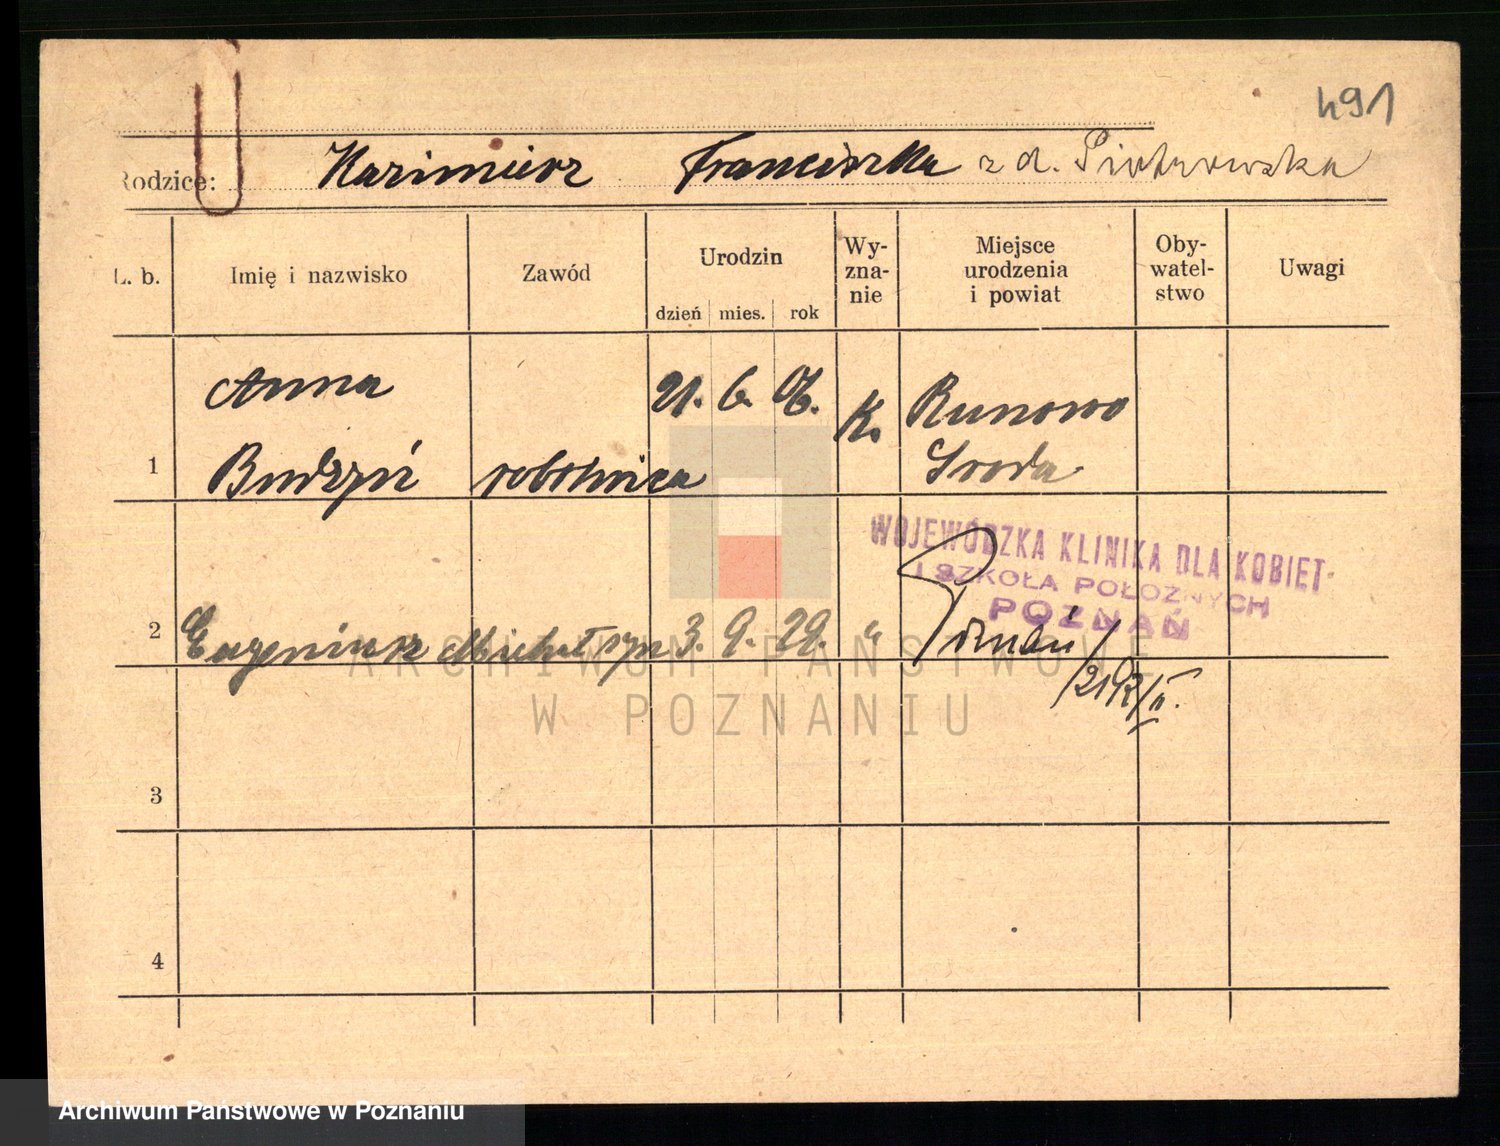 491
Rodzice: Kazimierz Franciszka z d. Piotrowska
L. b. Imię i nazwisko Zawód Urodzin dzień mies. rok Wy-zna-nie Miejsce urodzenia i powiat Oby-watel-stwo Uwagi
Anna 21. 6. 06. K. Runowo
1 Budzyń robotnica Środa
WOJEWÓDZKA KLINIKA DLA KOBIET
I SZKOŁA POŁOŻNYCH
POZNAŃ
2 Eugeniusz Michał syn 3. 9. 29. " Poznań
ARCHIWUM PAŃSTWOWE
W POZNANIU
3
4
Archiwum Państwowe w Poznaniu